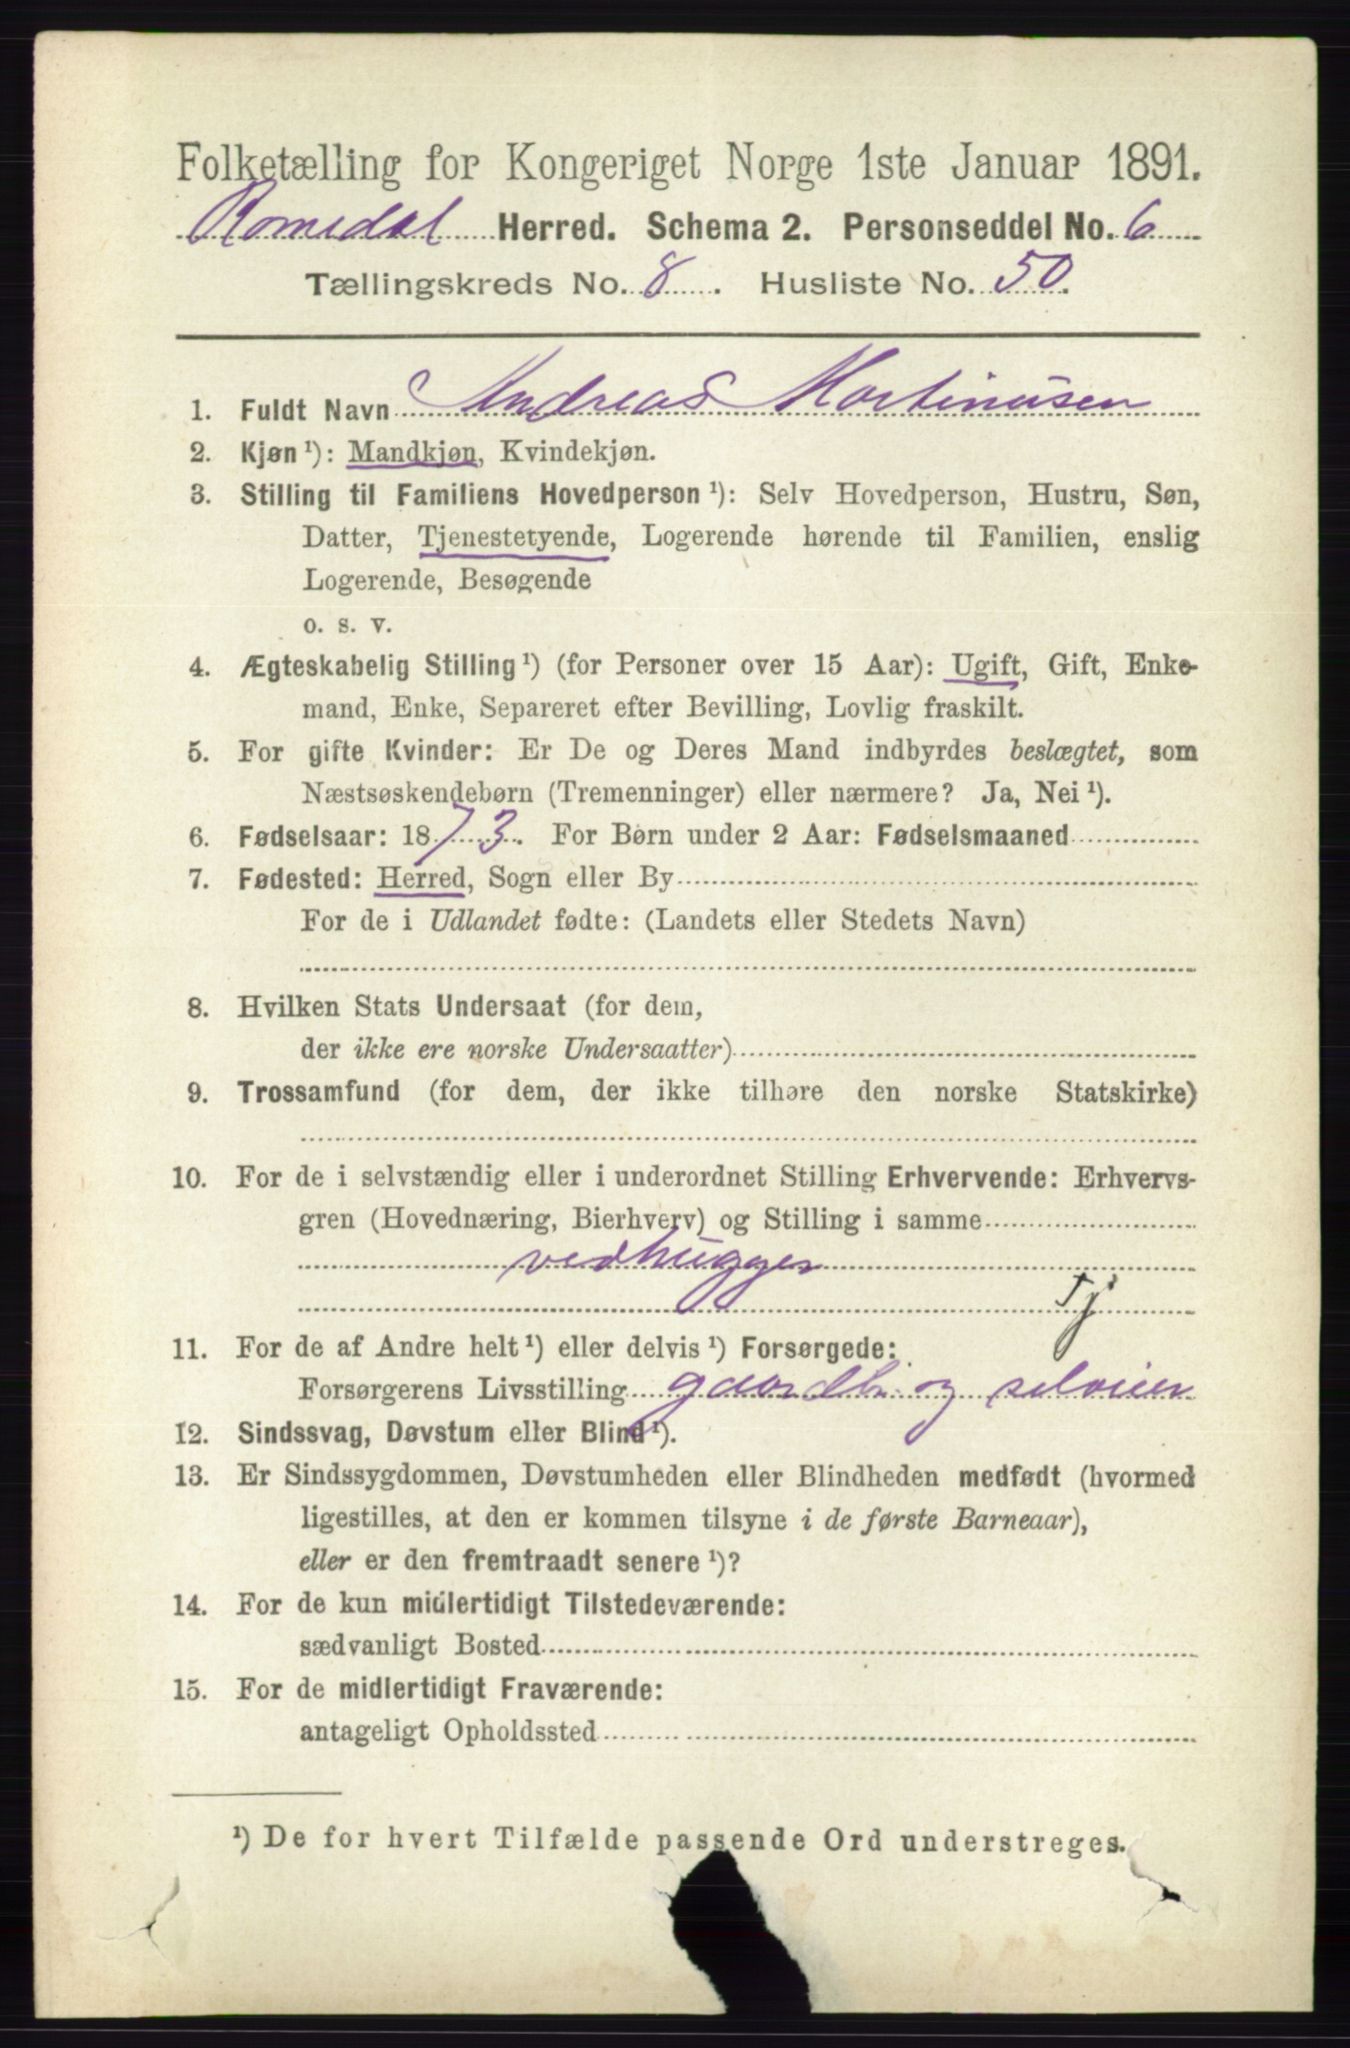 Folketælling for Kongeriget Norge 1ste Januar 1891.
Romedal Herred. Schema 2. Personseddel No. 6
Tællingskreds No. 8. Husliste No. 50.
1. Fuldt Navn Andreas Martinusen
2. Kjøn ¹): Mandkjøn, Kvindekjøn.
3. Stilling til Familiens Hovedperson ¹): Selv Hovedperson, Hustru, Søn,
Datter, Tjenestetyende, Logerende hørende til Familien, enslig
Logerende, Besøgende
o. s. v.
4. Ægteskabelig Stilling ¹) (for Personer over 15 Aar): Ugift, Gift, Enke-
mand, Enke, Separeret efter Bevilling, Lovlig fraskilt.
5. For gifte Kvinder: Er De og Deres Mand indbyrdes beslægtet, som
Næstsøskendebørn (Tremenninger) eller nærmere? Ja, Nei ¹).
6. Fødselsaar: 1873. For Børn under 2 Aar: Fødselsmaaned
7. Fødested: Herred, Sogn eller By
For de i Udlandet fødte: (Landets eller Stedets Navn)
8. Hvilken Stats Undersaat (for dem,
der ikke ere norske Undersaatter)
9. Trossamfund (for dem, der ikke tilhøre den norske Statskirke)
10. For de i selvstændig eller i underordnet Stilling Erhvervende: Erhvervs-
gren (Hovednæring, Bierhverv) og Stilling i samme
vedhugger
Tj
11. For de af Andre helt ¹) eller delvis ¹) Forsørgede:
Forsørgerens Livsstilling gaardbr. og selveier
12. Sindssvag, Døvstum eller Blind ¹).
13. Er Sindssygdommen, Døvstumheden eller Blindheden medfødt (hvormed
ligestilles, at den er kommen tilsyne i de første Barneaar),
eller er den fremtraadt senere ¹)?
14. For de kun midlertidigt Tilstedeværende:
sædvanligt Bosted
15. For de midlertidigt Fraværende:
antageligt Opholdssted
¹) De for hvert Tilfælde passende Ord understreges.